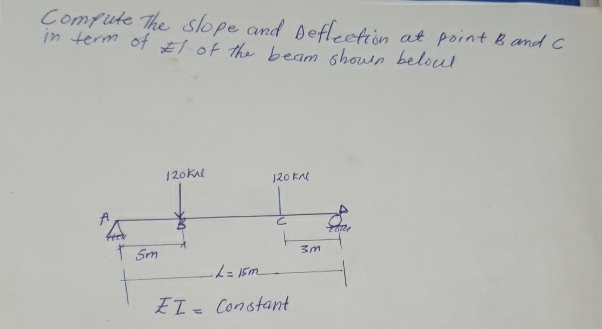 Compute The slope and Deflection at point B and C
in term of EI of the beam shown below
120KN 120KN
A B C D
5m 3m
L = 15m
EI = Constant